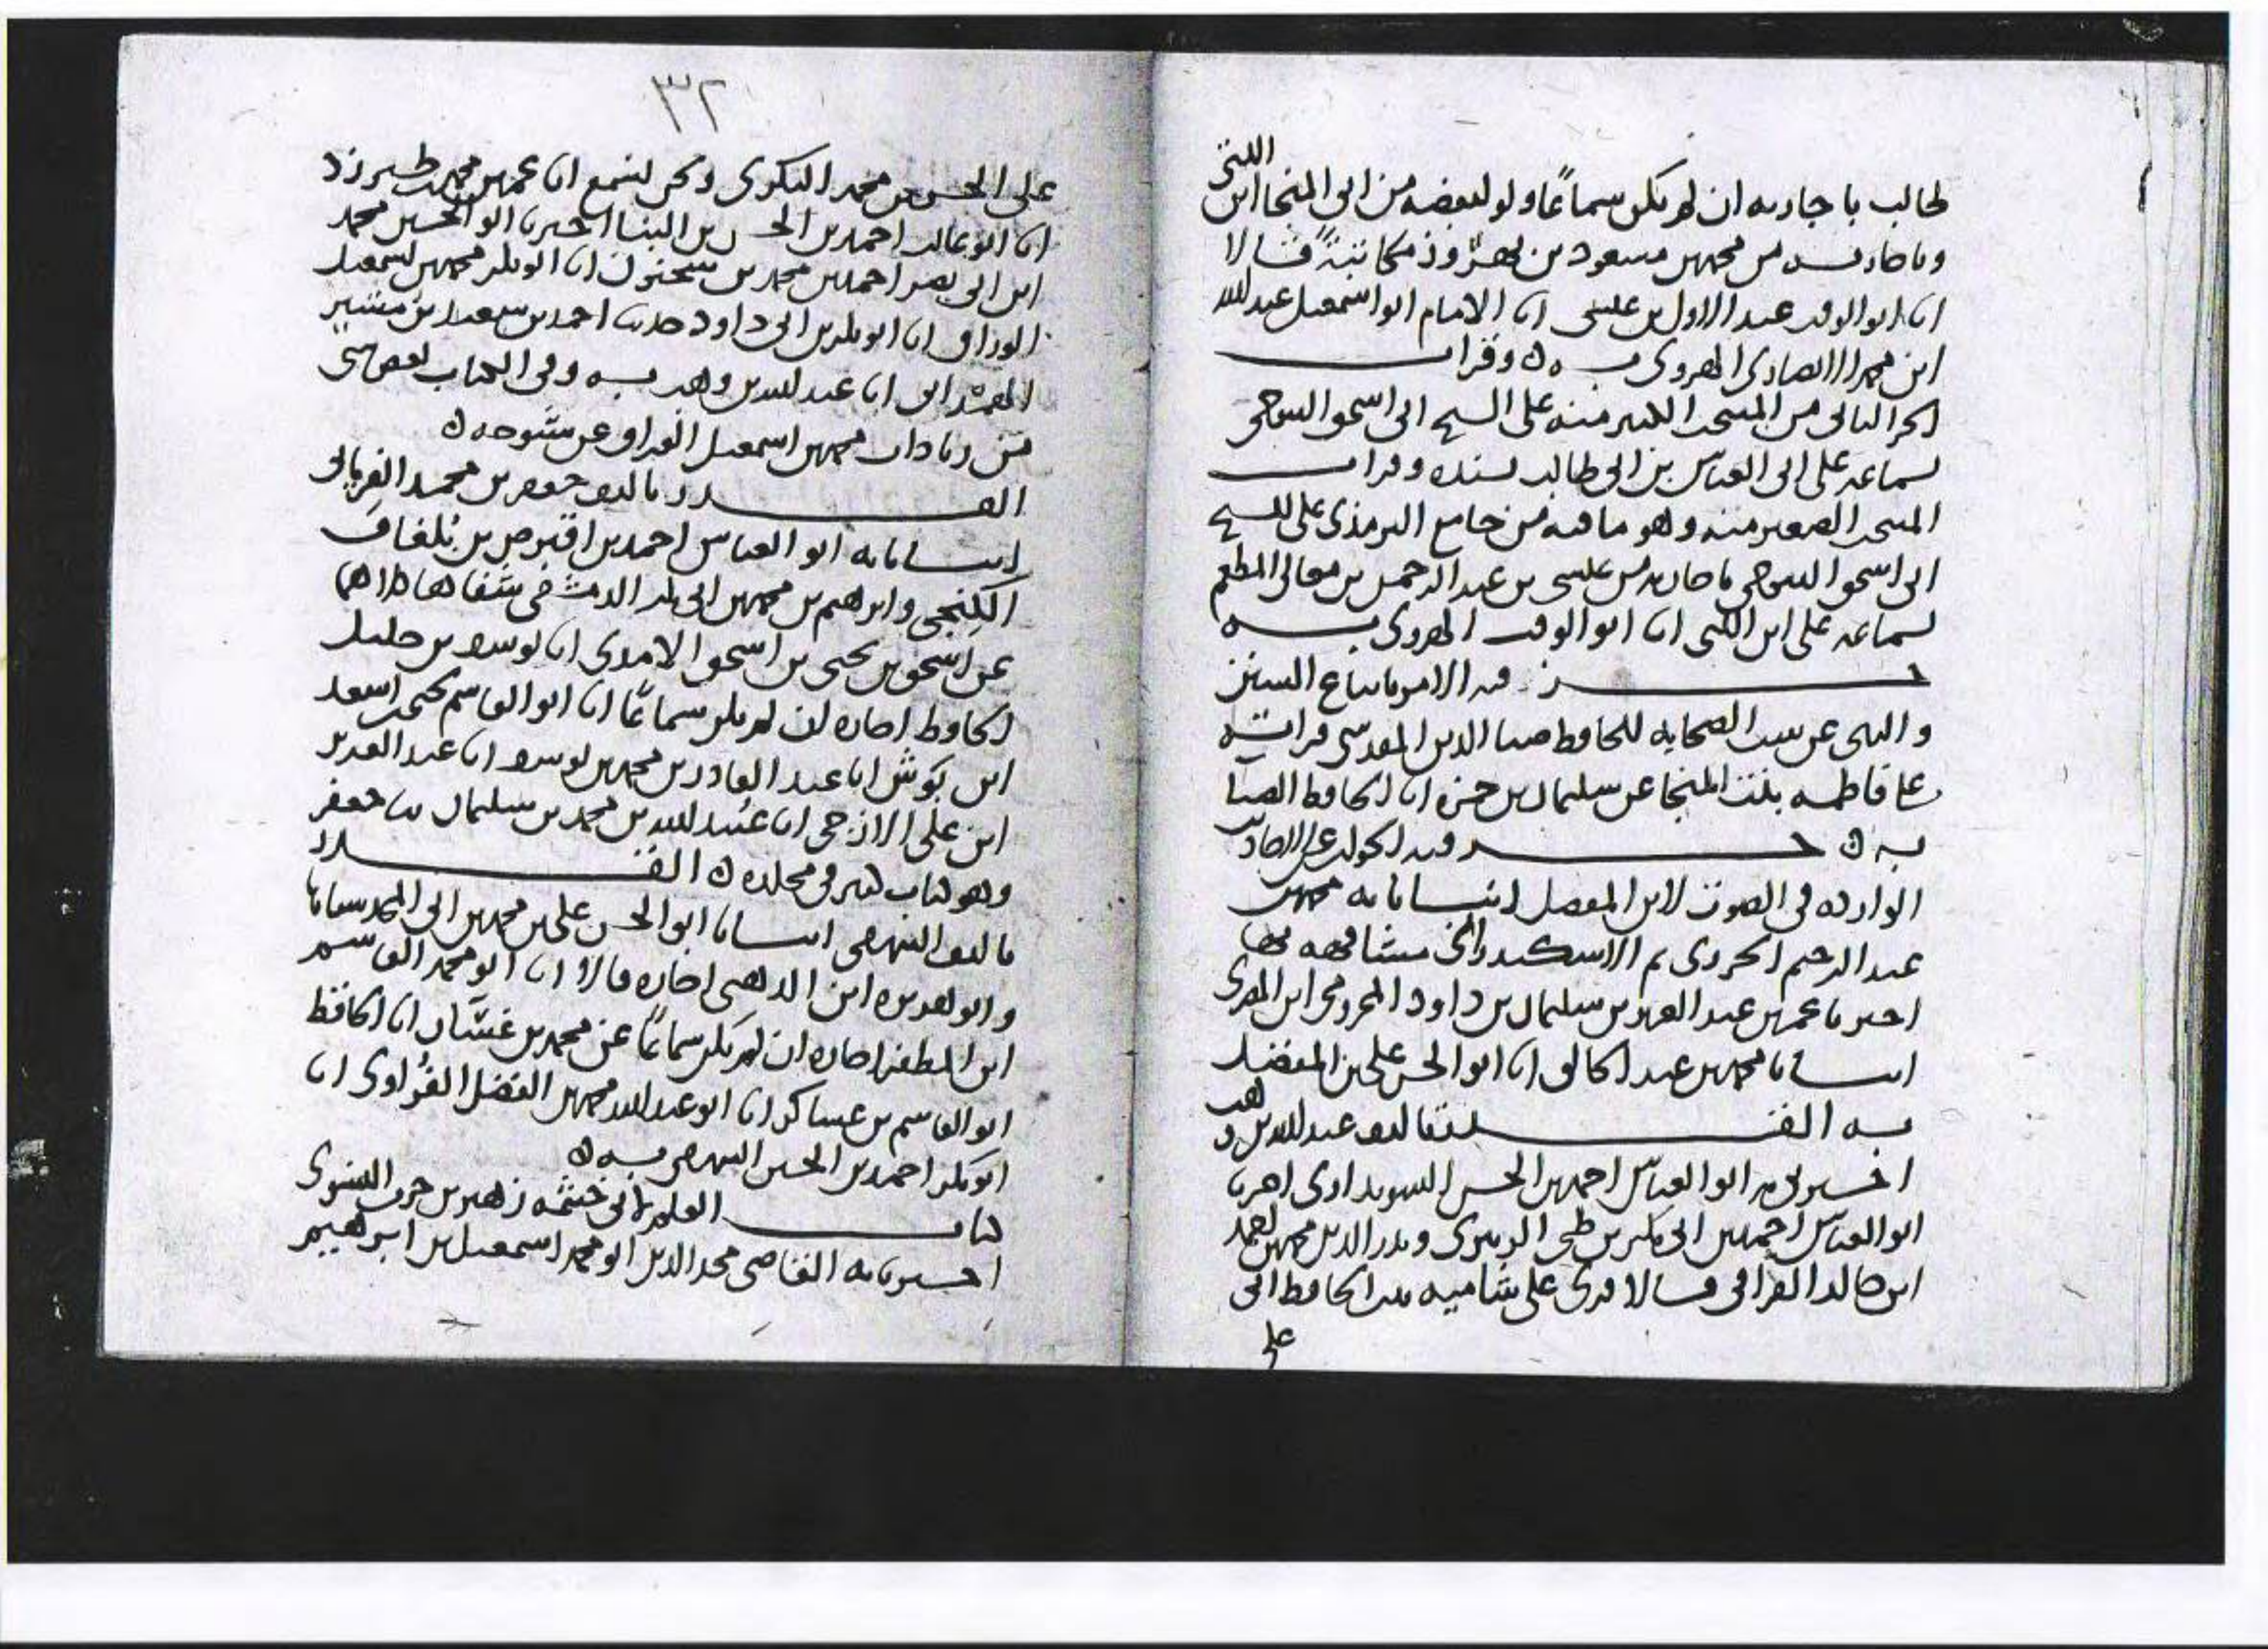 اللتي
طالب باجازته ان لم يكن سماعا ولو لبعضه من ابي المنجا ابن
وباجازته من محمد بن مسعود بن بهروز مكاتبة قالا
انا ابو الوقت عبد الاول بن عيسى انا الامام ابو اسمعيل عبد الله
ابن محمد الانصاري الهروي به ه وقرات
الجزء الثاني من المنتخب الكبير منه على الشيخ ابي اسحق التنوخي
بسماعه على ابي العباس بن ابي طالب بسنده وقرات
المنتخب الصغير منه وهو ما فيه من جامع الترمذي على الشيخ
ابي اسحق التنوخي باجازته من عيسى بن عبد الرحمن بن معالي المطعم
بسماعه على ابن اللتي انا ابو الوقت الهروي به
جزء فيه الامر باتباع السنن
والنهي عن سب الصحابة للحافظ ضيا الدين المقدسي قراته
على فاطمه بنت المنجا عن سليمان بن حمزه انا الحافظ الضيا
به ه جزء فيه الجواب عن الاحاديث
الوارده في الصوت لابن المفضل انبانا به محمد بن
عبد الرحيم الجزري ثم الاسكندراني مشافهه بها
اخبرنا محمد بن عبد العزيز بن سليمان بن داود المخزومي ابن المقري
انبانا محمد بن عبد الخالق انا ابو الحسن علي بن المفضل
به الفتن تاليف عبد الله بن وهب
اخبرني به ابو العباس احمد بن الحسن السويداوي اخبرنا
ابو العباس احمد بن ابي بكر بن طي الزبيري وبدر الدين محمد بن احمد
ابن خالد الفارقي قالا قرئ على شاميه بنت الحافظ ابي
علي
٣٢
علي الحسن بن محمد البكري ونحن نسمع انا عمر بن محمد بن طبرزد
انا ابو غالب احمد بن الحسن بن البنا اخبرنا ابو الحسين محمد
ابن ابي نصر احمد بن محمد بن سحنون انا ابو بكر محمد بن اسمعيل
الوراق انا ابو بكر بن ابي داود حدثنا احمد بن سعيد بن بشير
الهمداني انا عبد الله بن وهب به وفي الكتاب بعض شي
من زيادات محمد بن اسمعيل الوراق عن شيوخه ه
القدر تاليف جعفر بن محمد الفريابي
انبانا به ابو العباس احمد بن اقبرص بن بلغاق
الكنجي وابرهيم بن محمد بن ابي بكر الدمشقي شفاها كلاهما
عن اسحق بن يحيى بن اسحق الامدي انا يوسف بن خليل
الحافظ اجازه ان لم يكن سماعا انا ابو القاسم يحيى بن اسعد
ابن بوش انا عبد القادر بن محمد بن يوسف انا عبد العزيز
ابن علي الازجي انا عبيد الله بن محمد بن سليمان ثنا جعفر
وهو كتاب كبير في مجلده ه القدر
تاليف البيهقي انبانا ابو الحسن علي بن محمد بن ابي المجد سماعا
وابو هريره ابن الذهبي اجازه قالا انا ابو محمد القاسم
ابن المظفر اجازه ان لم يكن سماعا عن محمد بن غسان انا الحافظ
ابو القاسم بن عساكر انا ابو عبد الله محمد بن الفضل الفراوي انا
ابو بكر احمد بن الحسين البيهقي به ه
كتاب العلم لابي خيثمه زهير بن حرب النسوي
اخبرنا به القاضي مجد الدين ابو محمد اسمعيل بن ابرهيم